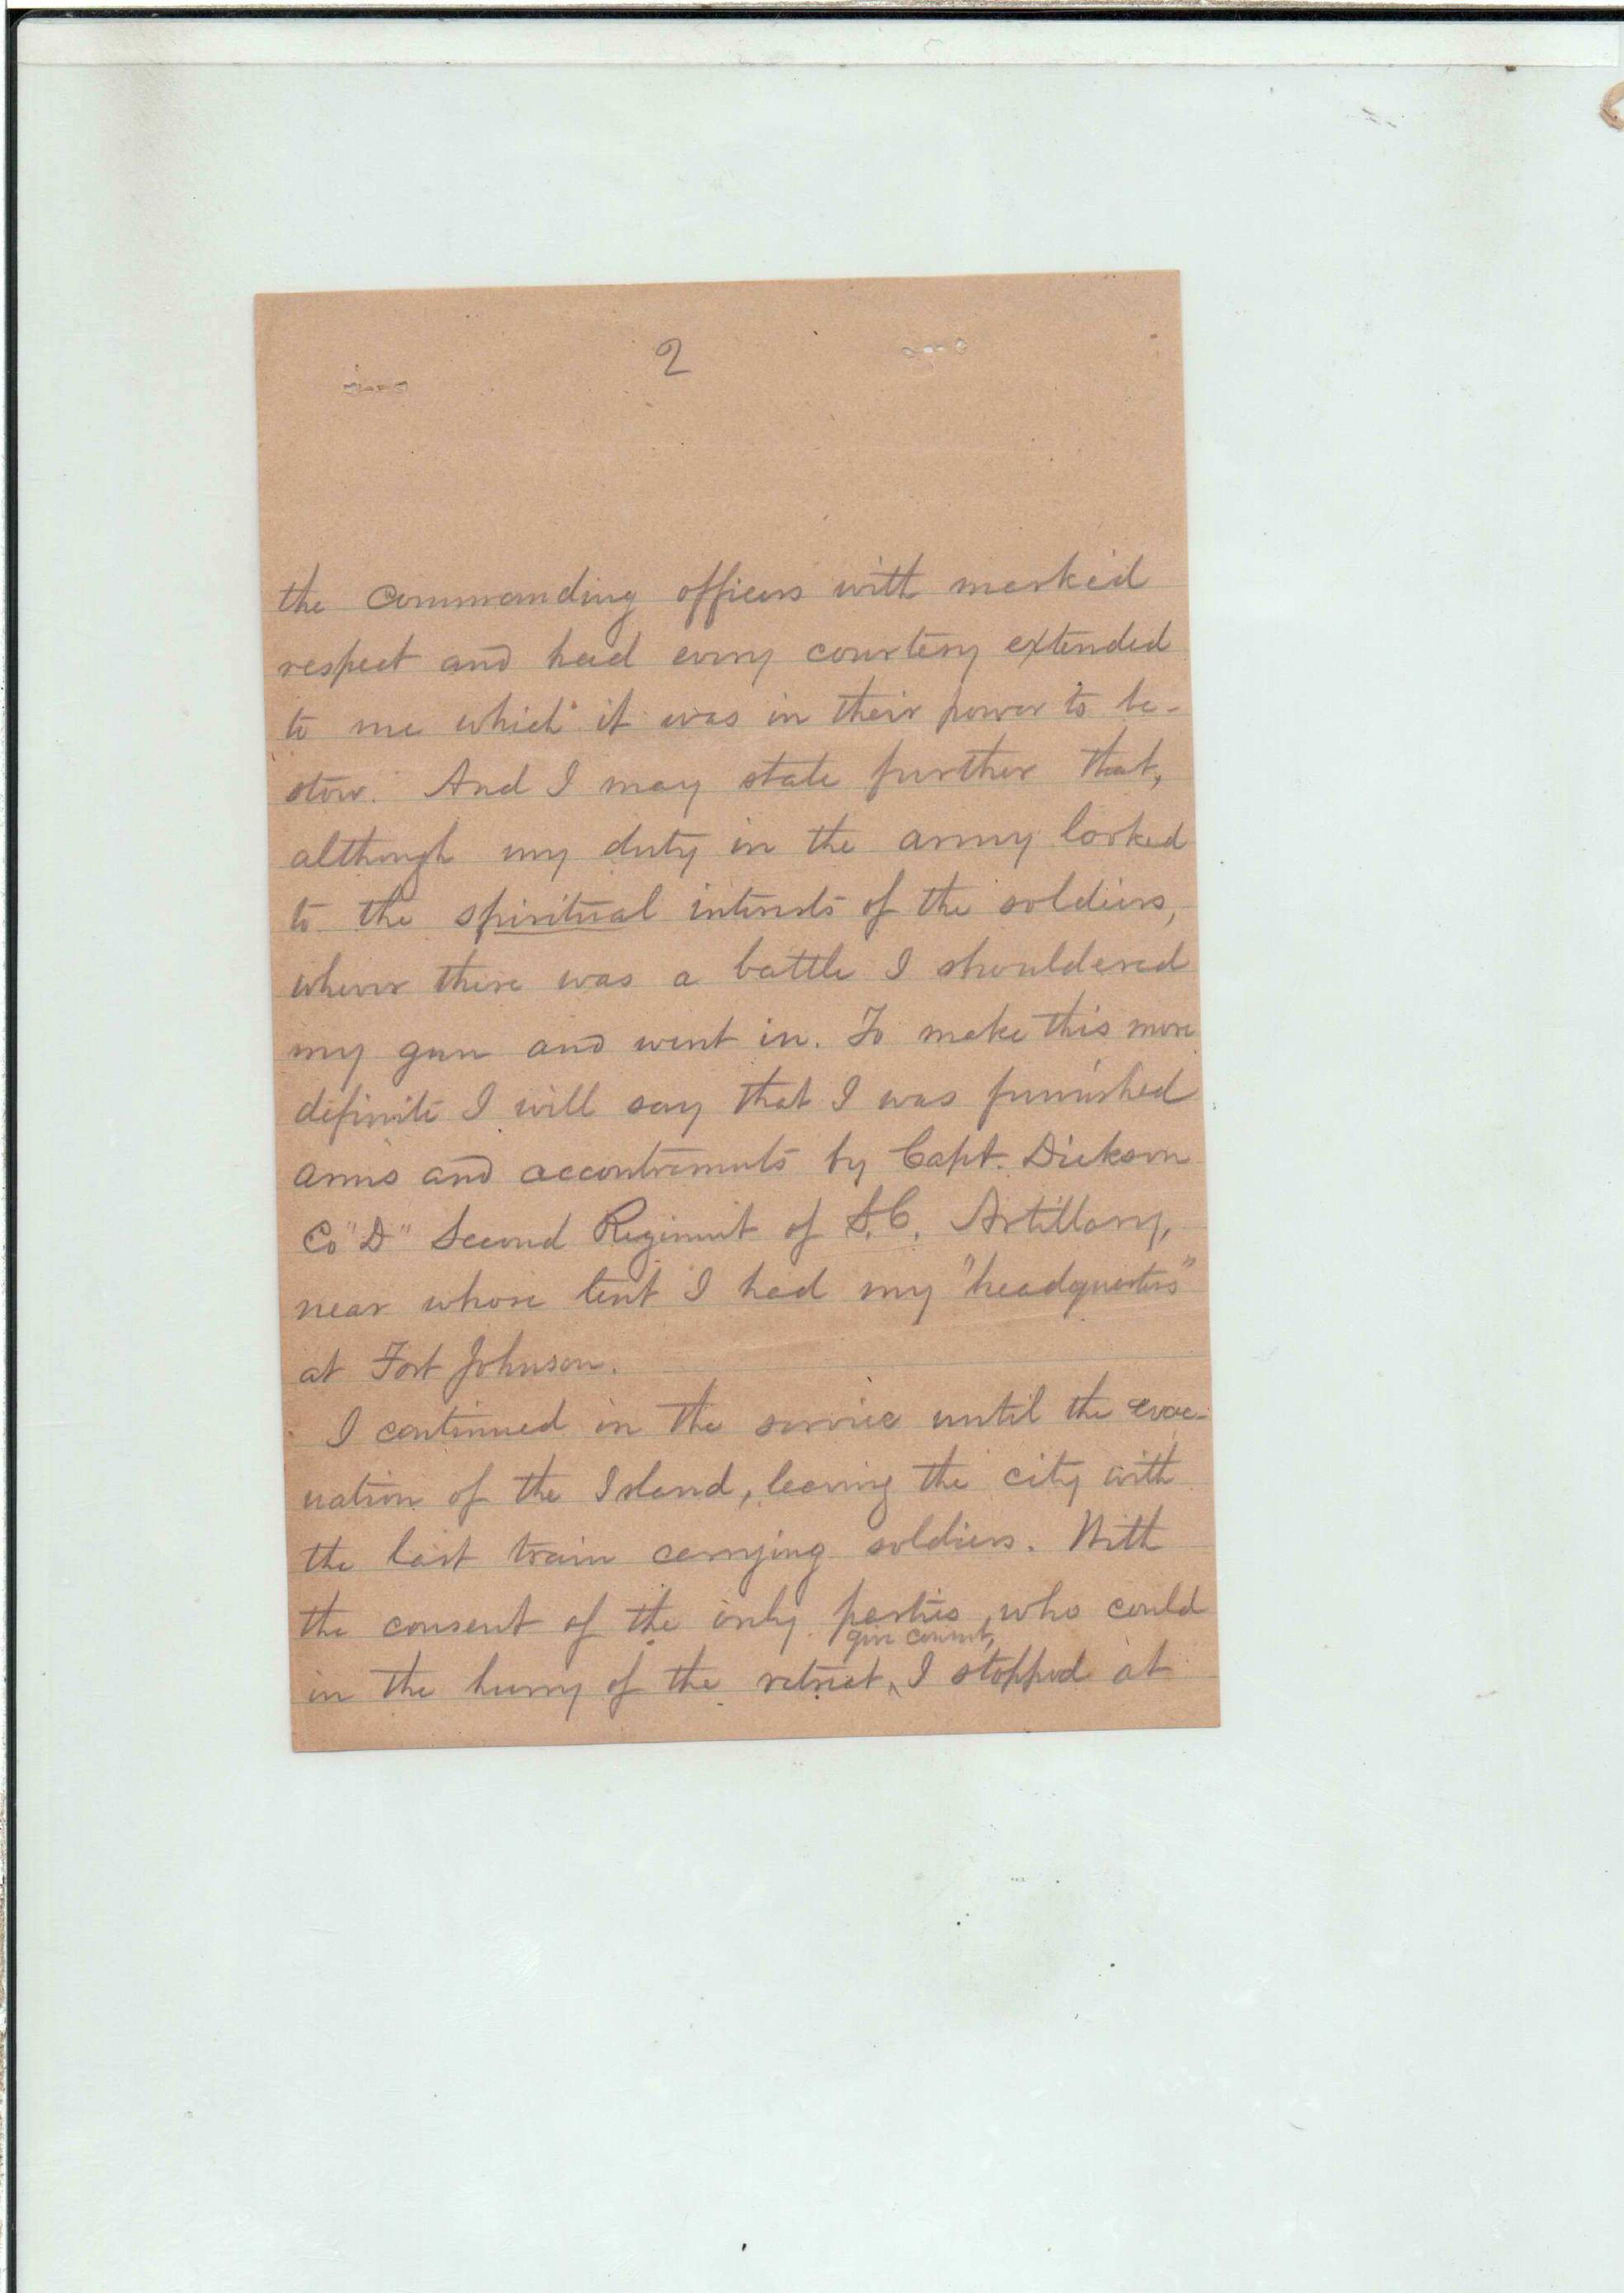 2
the commanding officers with marked
respect and had every courtesy extended
to me which it was in their power to be-
stow. And I may state further that,
although my duty in the army looked
to the spiritual interests of the soldiers,
whever there was a battle I shouldered
my gun and went in. To make this more
definite I will say that I was furnished
arms and accoutrements by Capt. Dickson
Co "D" Second Regiment of S.C. Artillary,
near whose tent I had my "headquarters"
at Fort Johnson.
I continued in the service until the evac-
uation of the Island, leaving the city with
the last train carrying soldiers. With
the consent of the only parties, who could
give consent,
in the hurry of the retreat, I stopped at